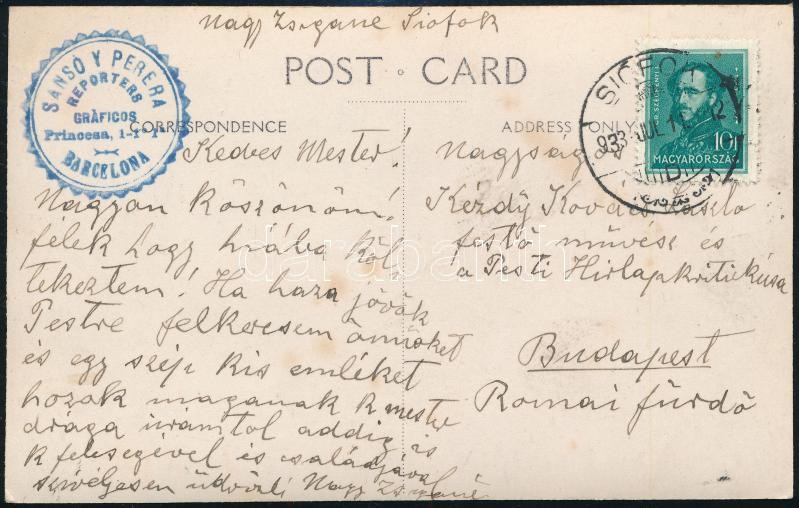 Nagy Zsigáné Siófok
POST CARD
CORRESPONDENCE
ADDRESS ONLY
SANSÓ Y PERERA
REPORTERS
GRÁFICOS
Princesa, 1-1º 1ª
BARCELONA
SIÓFOK
933 JUL 1
10f
MAGYARORSZÁG
Kedves Mester!
Nagyon köszönöm!
félek hogy hiába köl
tekeztem! Ha haza jövök
Pestre felkeresem önnöket
és egy szép kis emléket
hozok magának k. mester
drága uramtól addig is
k. feleségével és családjával
szivélyesen üdvözli Nagy Zsigáné
Nagyság
Kézdy Kovács László
festő művész és
a Pesti Hirlap kritikusa
Budapest
Romai fürdő
darabanth